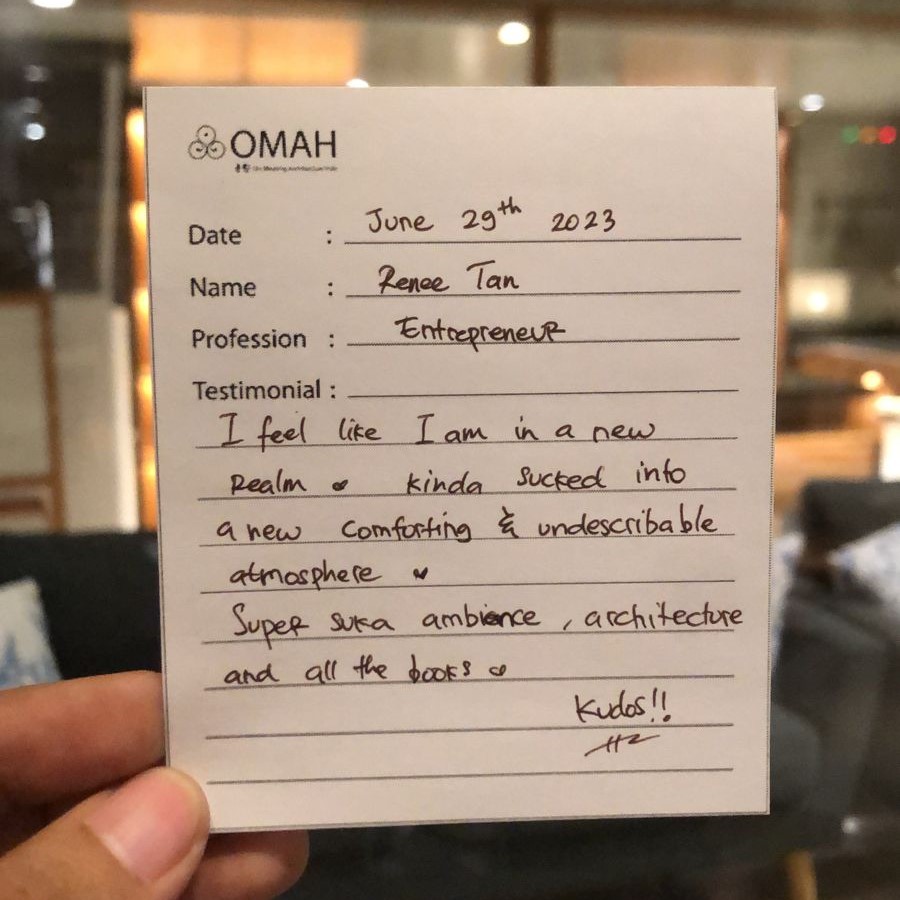 OMAH
Date : June 29th 2023
Name : Renee Tan
Profession : Entrepreneur
Testimonial :
I feel like I am in a new
Realm kinda sucked into
a new comforting & undescribable
atmosphere
Super suka ambience, architecture
and all the books
Kudos!!